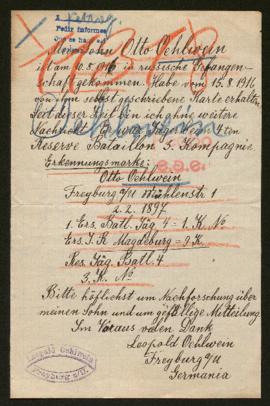 Pedir informes
Mein Sohn Otto Oehlwein
ist am 10.8.1916 in russische Gefangen-
schaft gekommen. Habe vom 15.8.1916
von ihm selbst geschriebene Karte erhalten.
Seit dieser Zeit bin ich ohne weitere
Nachricht. Er war Jäger beim 4ten
Reserve Bataillon 3. Kompagnie.
Erkennungsmarke:
Otto Oehlwein
Freyburg a/U Mühlenstr 1
2.2.1897
1. Ers. Batl. Jäg 4 = 1. K. No
Ers. J. R. Magdeburg = 3 K.
Res. Jäg. Batl. 4
3. K. No
Bitte höflichst um Nachforschung über
meinen Sohn und um gefällige Mitteilung.
Im Voraus vielen Dank
Leopold Oehlwein
Freyburg a/U
Germania
Leopold Oehlwein
Freyburg a/U.